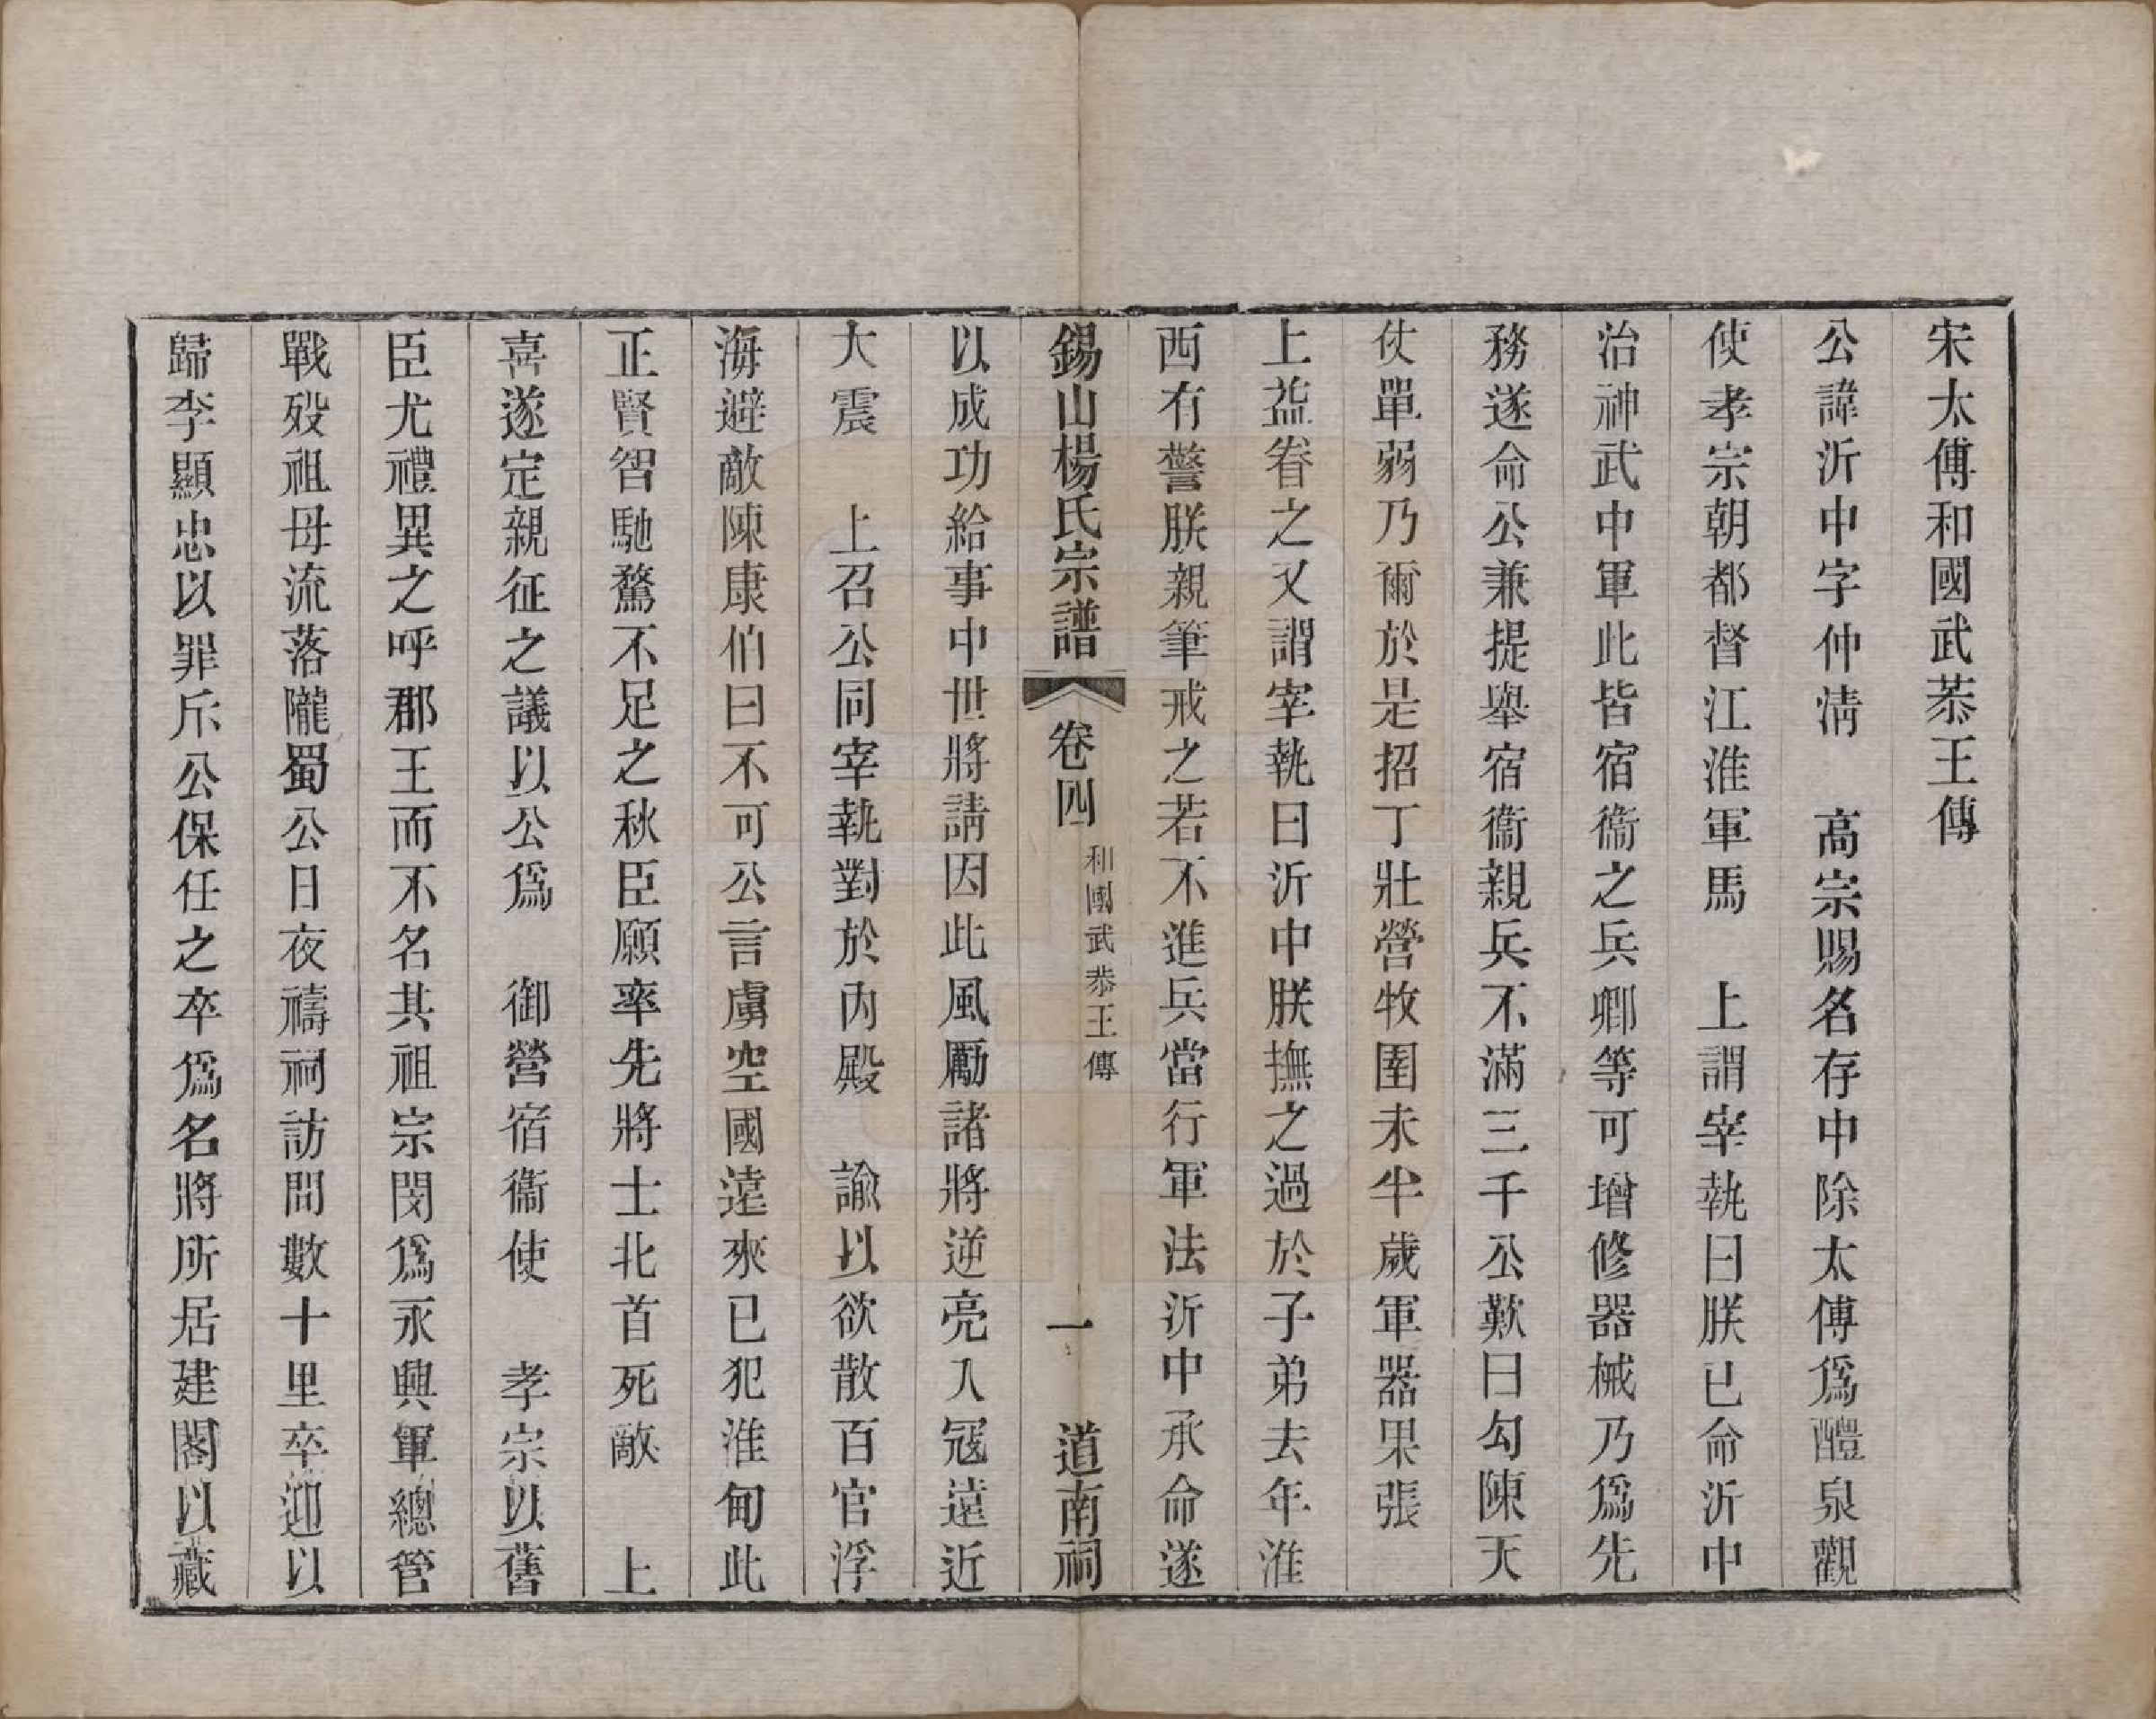 宋太傅和國武恭王傳
公諱沂中字仲淸　高宗賜名存中除太傅爲醴泉觀
使孝宗朝都督江淮軍馬　上謂宰執曰朕已命沂中
治神武中軍此皆宿衞之兵卿等可增修器械乃爲先
務遂命公兼提舉宿衞親兵不滿三千公歎曰勾陳天
仗單弱乃爾於是招丁壯營牧圉未半歲軍器果張
上益眷之又謂宰執曰沂中朕撫之過於子弟去年淮
西有警朕親筆戒之若不進兵當行軍法沂中承命遂
錫山楊氏宗譜　卷四　和國武恭王傳　一　道南祠
以成功給事中世將請因此風勵諸將逆亮入寇遠近
大震　上召公同宰執對於內殿　諭以欲散百官浮
海避敵陳康伯曰不可公言虜空國遠來已犯淮甸此
正賢智馳騖不足之秋臣願率先將士北首死敵　上
喜遂定親征之議以公爲　御營宿衞使　孝宗以舊
臣尤禮異之呼郡王而不名其祖宗閔爲永興軍總管
戰歿祖母流落隴蜀公日夜禱祠訪問數十里卒迎以
歸李顯忠以罪斥公保任之卒爲名將所居建閣以藏